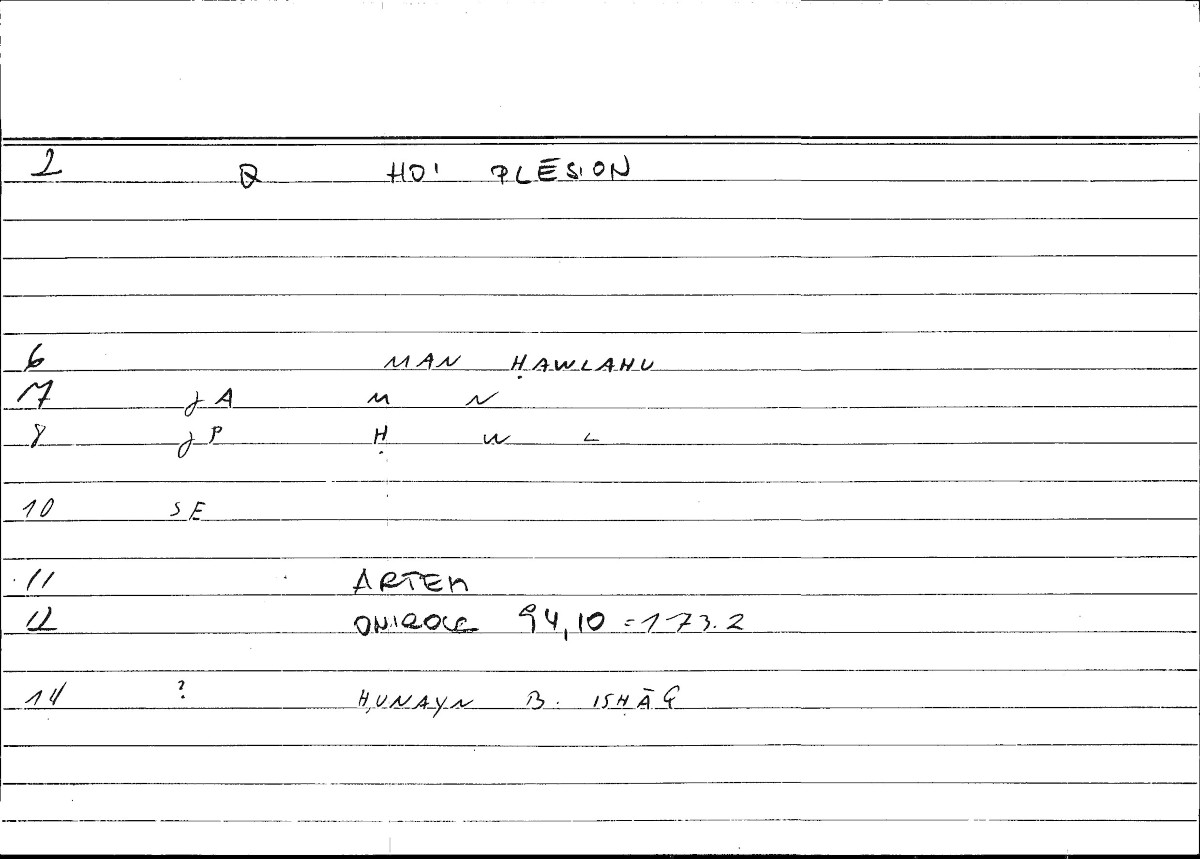 2 Q HOI PLĒSION
6 MAN ḤAWLAHU
7 JA M N
8 JP Ḥ W L
10 SE
11 ARTEM
12 ONIROCR 94,10 = 173.2
14 ? ḤUNAYN B. ISḤĀQ